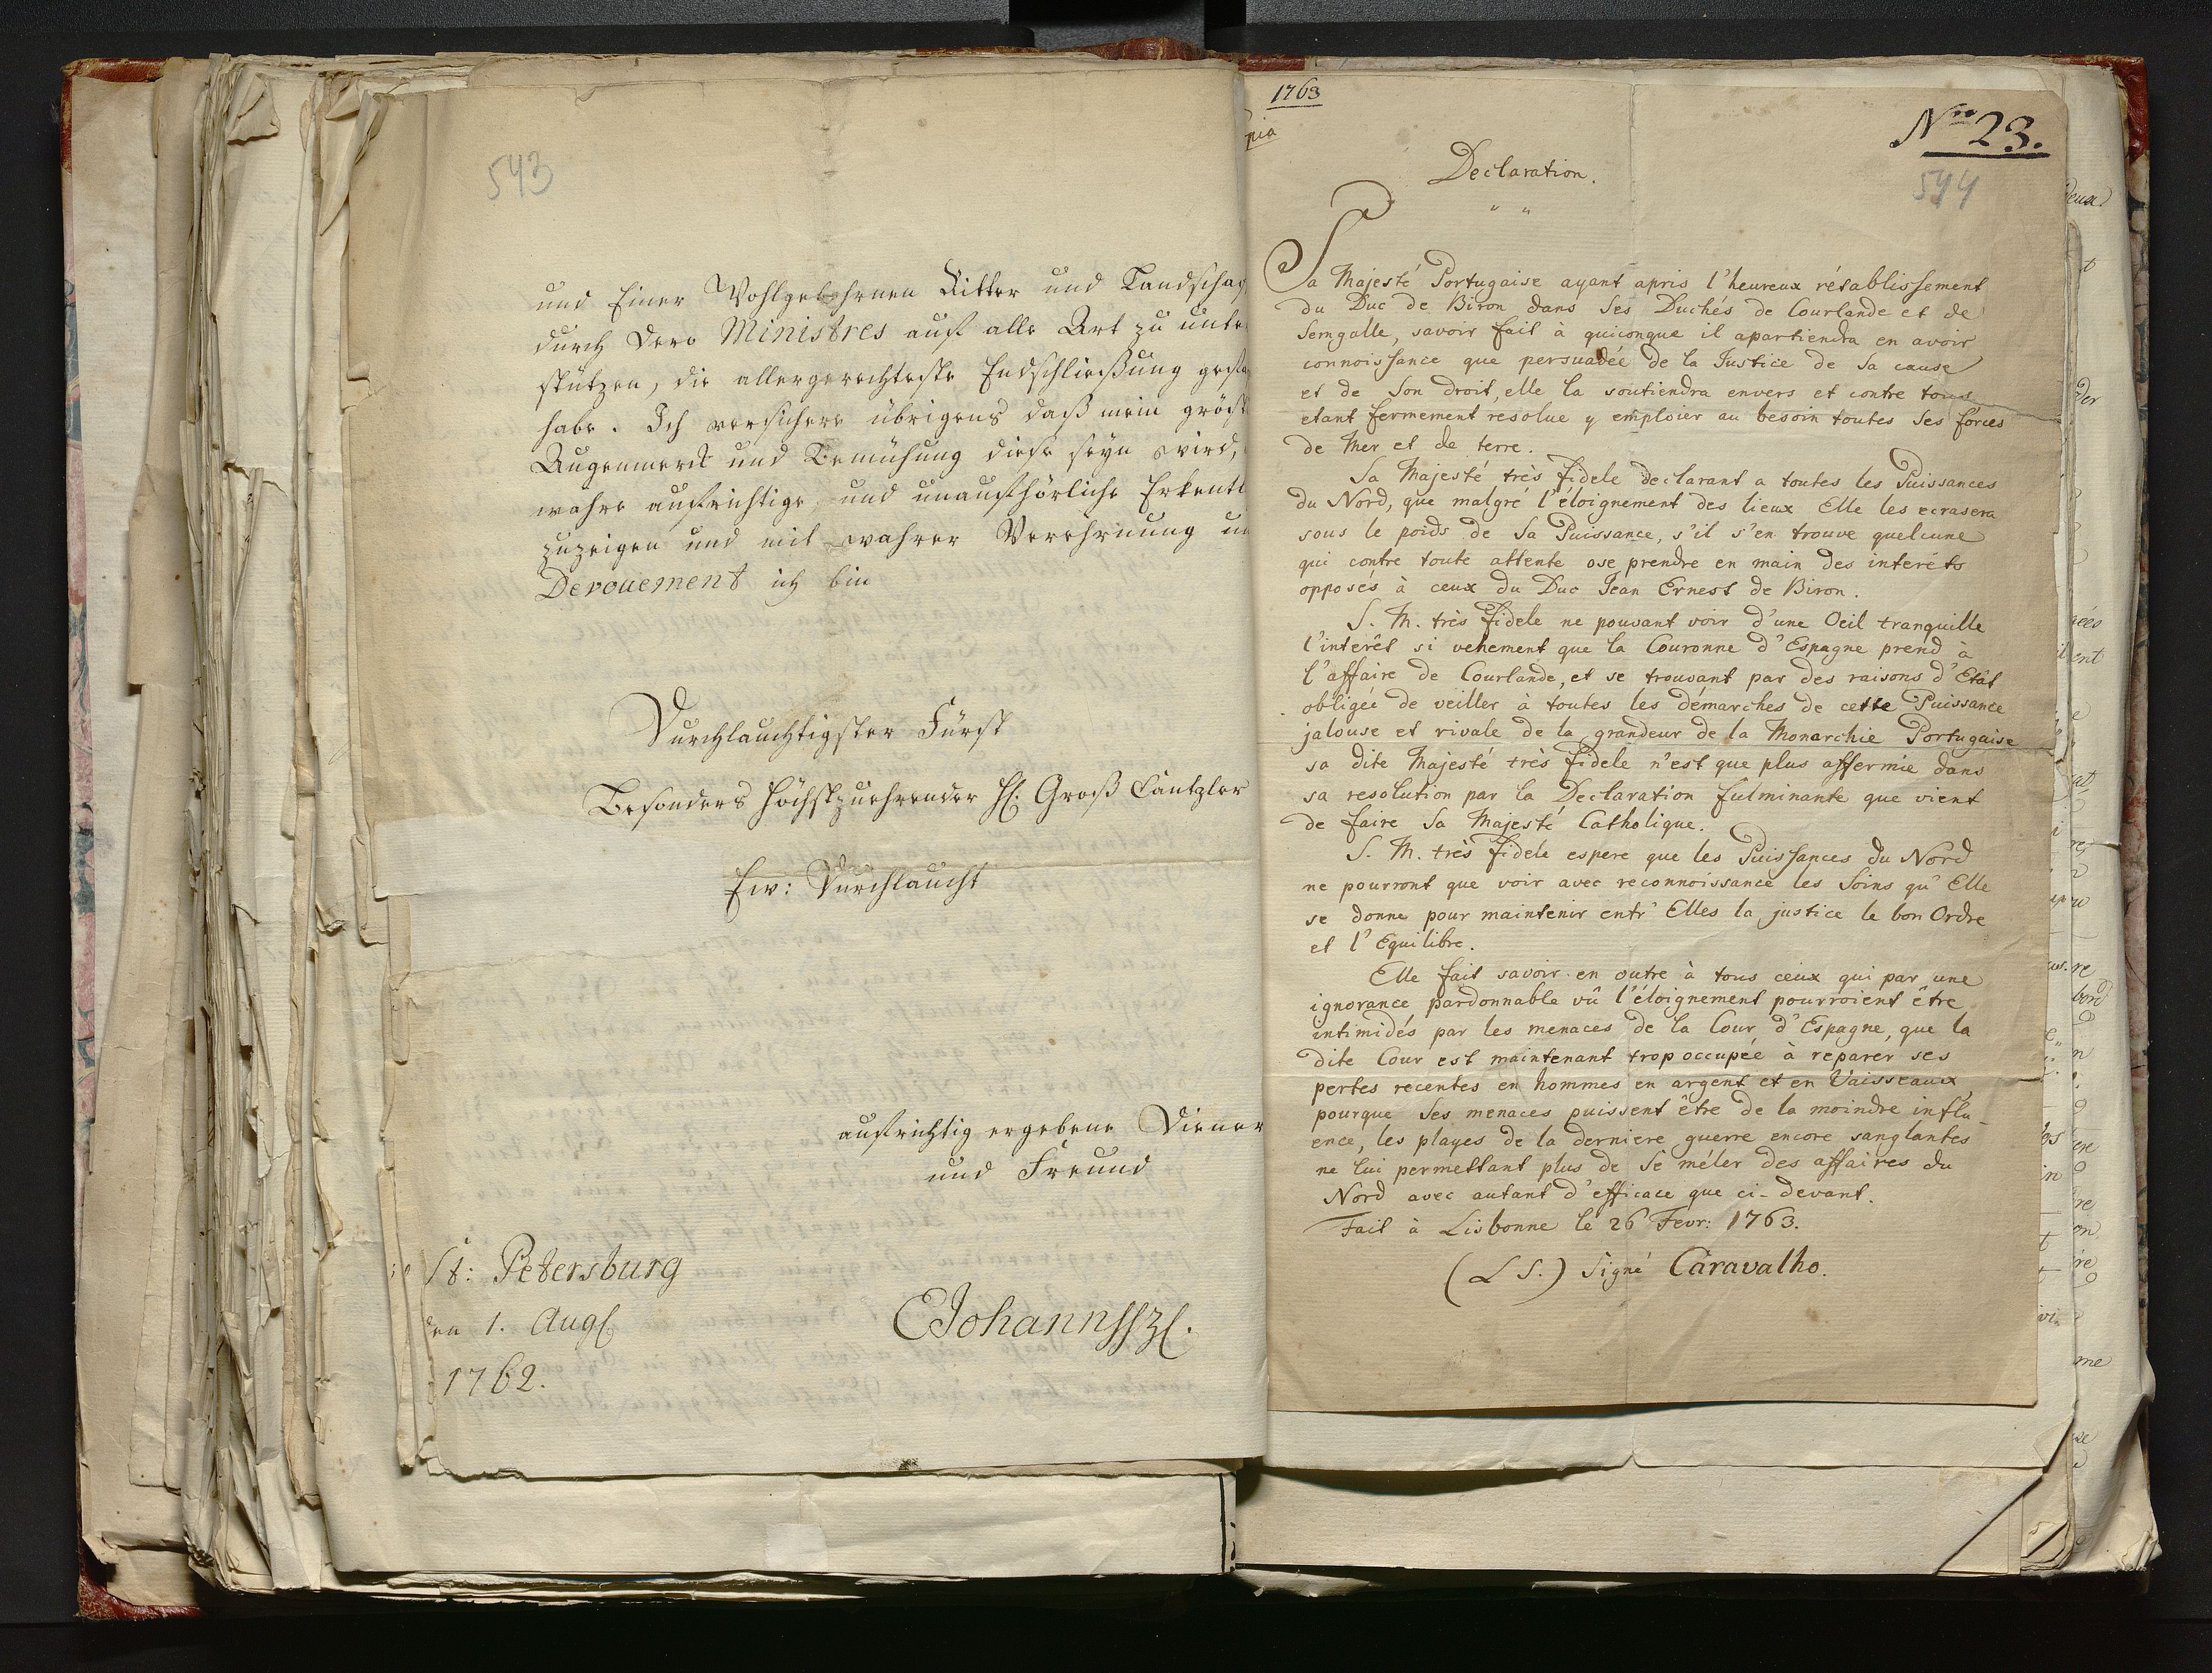 543
und Einer Wohlgebohrnen Ritter und Landschaf
durch Dero Ministres auf alle Art zu unter
stützen, die allergerechteste Endschließung gefaß
habe. Ich versichere übrigens daß mein gröste
Augenmerck und Bemühung diese seyn wird,
wahre aufrichtige, und unaufhörliche Erkentl
zuzeigen und mit wahrer Verehrung un
Devouement ich bin
Durchlauchtigster Fürst
Besonders Höchstzuehrender H: Groß Cantzler
Ew: Durchlaucht
aufrichtig ergebene Diener
und Freund
St: Petersburg
den 1. Aug
1762.
EJohann
1763
nia
Nro 23.
544
Declaration.
Sa Majesté Portugaise ayant apris l'heureux rétablissement
du Duc de Biron dans Ses Duchés de Courlande et de
Semgalle, savoir fait à quiconque il apartiendra en avoir
connoissance que persuadée de la Justice de Sa cause
et de Son droit, elle la soutiendra envers et contre tous
etant fermement resolue y emploier au besoin toutes Ses forces
de Mer et de terre.
Sa Majesté très fidele declarant a toutes les Puissances
du Nord, que malgré l'éloignement des lieux Elle les ecrasera
sous le poids de Sa Puissance, s'il s'en trouve quelcune
qui contre toute attente ose prendre en main des interéts
opposés à ceux du Duc Jean Ernest de Biron.
S. M. très fidele ne pouvant voir d'une Oeil tranquille
l'interêt si vehement que la Couronne d'Espagne prend à
l'affaire de Courlande, et se trouvant par des raisons d'Etât
obligée de veiller à toutes les démarches de cette Puissance
jalouse et rivale de la grandeur de la Monarchie Portugaise
sa dite Majesté très fidele n'est que plus affermie dans
sa resolution par la Declaration fulminante que vient
de faire Sa Majesté Catholique.
S. M. très fidele espere que les Puissances du Nord
ne pourront que voir avec reconnoissance les Soins qu'Elle
se donne pour maintenir entr'Elles la justice le bon Ordre
et l'Equilibre.
Elle fait savoir en outre à tous ceux qui par une
ignorance pardonnable vû l'éloignement pourroient être
intimidés par les menaces de la Cour d'Espagne, que la
dite Cour est maintenant trop occupée à réparer ses
pertes recentes en hommes en argent et en Vaisseaux,
pourque Ses menaces puissent être de la moindre influ-
ence, les playes de la derniere guerre encore sanglantes
ne lui permettant plus de Se méler des affaires du
Nord avec autant d'efficace que ci-devant.
Fait à Lisbonne le 26 Fevr: 1763.
(L S.) Signé Caravalho.